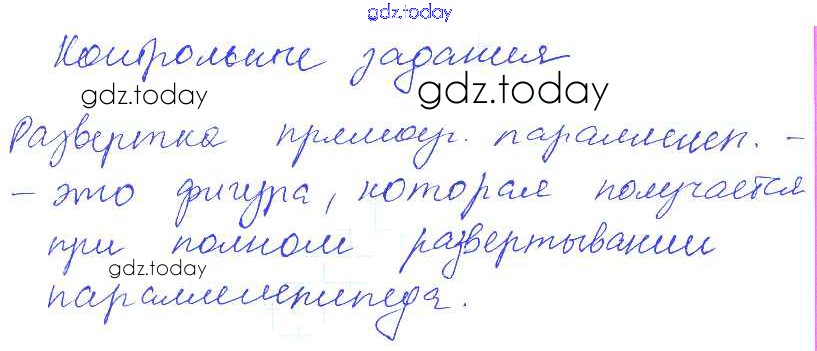 gdz.today
Контрольные задания
gdz.today gdz.today
Развертка прямоуг. параллелеп. –
– это фигура, которая получается
при полном развертывании
gdz.today
параллелепипеда.